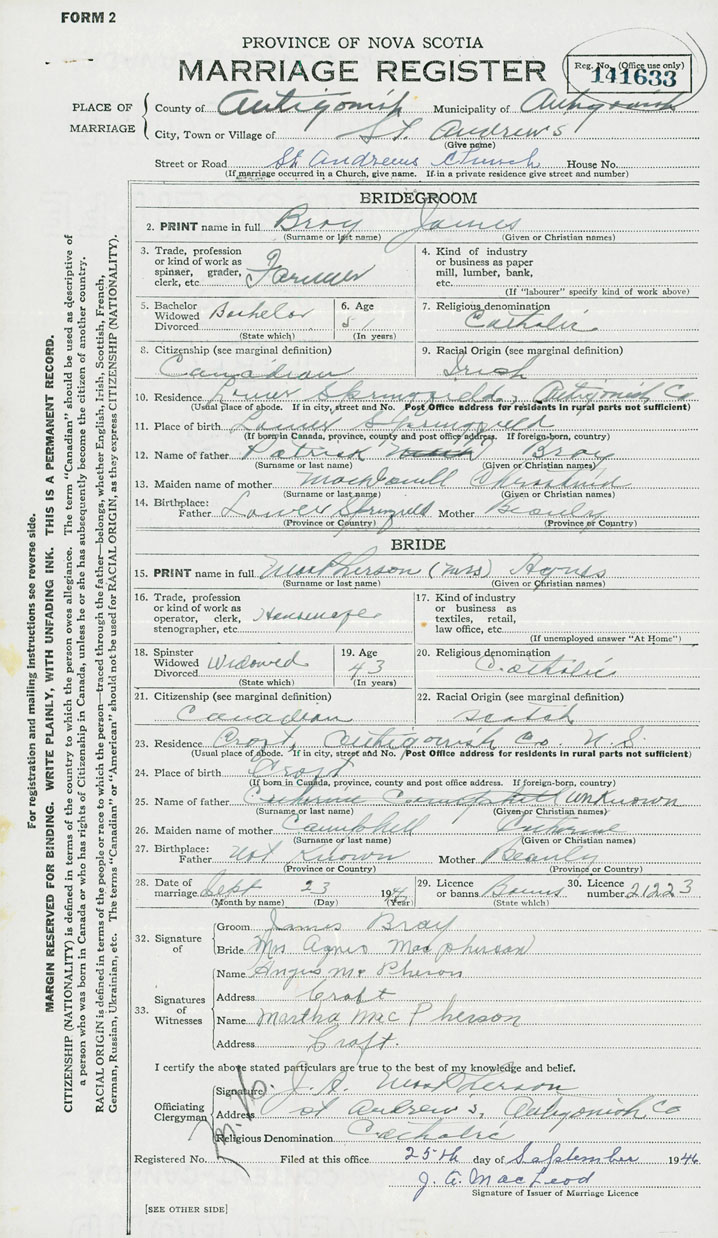 FORM 2
PROVINCE OF NOVA SCOTIA
MARRIAGE REGISTER
Reg. No. (Office use only)
141633
PLACE OF MARRIAGE
County of Antigonish Municipality of Antigonish
City, Town or Village of St. Andrews
(Give name)
Street or Road St Andrews Church House No.
(If marriage occurred in a Church, give name. If in a private residence give street and number)
BRIDEGROOM
2. PRINT name in full Bray James
(Surname or last name) (Given or Christian names)
3. Trade, profession or kind of work as spinner, grader, clerk, etc. Farmer
4. Kind of industry or business as paper mill, lumber, bank, etc.
(If "labourer" specify kind of work above)
5. Bachelor Widowed Divorced Bachelor
(State which)
6. Age 51
(In years)
7. Religious denomination Catholic
8. Citizenship (see marginal definition)
Canadian
9. Racial Origin (see marginal definition)
Irish
10. Residence Lower Springfield, Antigonish Co
(Usual place of abode. If in city, street and No. Post Office address for residents in rural parts not sufficient)
11. Place of birth Lower Springfield
(If born in Canada, province, county and post office address. If foreign-born, country)
12. Name of father Patrick Bray
(Surname or last name) (Given or Christian names)
13. Maiden name of mother
(Surname or last name) (Given or Christian names)
14. Birthplace: Father Lower Springfield Mother Beauly
(Province or Country) (Province or Country)
BRIDE
15. PRINT name in full MacPherson (Mrs) Agnes
(Surname or last name) (Given or Christian names)
16. Trade, profession or kind of work as operator, clerk, stenographer, etc.
17. Kind of industry or business as textiles, retail, law office, etc.
(If unemployed answer "At Home")
18. Spinster Widowed Divorced Widowed
(State which)
19. Age 43
(In years)
20. Religious denomination Catholic
21. Citizenship (see marginal definition)
Canadian
22. Racial Origin (see marginal definition)
Scotch
23. Residence Croft, Antigonish Co. N.S.
(Usual place of abode. If in city, street and No. Post Office address for residents in rural parts not sufficient)
24. Place of birth Croft
(If born in Canada, province, county and post office address. If foreign-born, country)
25. Name of father Catherine Campbell Unknown
(Surname or last name) (Given or Christian names)
26. Maiden name of mother Campbell Catherine
(Surname or last name) (Given or Christian names)
27. Birthplace: Father Not Known Mother Beauly
(Province or Country) (Province or Country)
28. Date of marriage Sept 23 194
(Month by name) (Day) (Year)
29. Licence or banns Banns
(State which)
30. Licence number 21223
32. Signature of
Groom James Bray
Bride Mrs Agnes Macpherson
33. Signatures of Witnesses
Name Angus Mc Pherson
Address Croft
Name Martha Mac Pherson
Address Croft.
I certify the above stated particulars are true to the best of my knowledge and belief.
Officiating Clergyman
Signature J. A. MacPherson
Address St Andrew's, Antigonish Co
Religious Denomination Catholic
Registered No. Filed at this office 25th day of September 1946
J. A. MacLeod
Signature of Issuer of Marriage Licence
[SEE OTHER SIDE]
For registration and mailing instructions see reverse side.
MARGIN RESERVED FOR BINDING. WRITE PLAINLY, WITH UNFADING INK. THIS IS A PERMANENT RECORD.
CITIZENSHIP (NATIONALITY) is defined in terms of the country to which the person owes allegiance. The term "Canadian" should be used as descriptive of
a person who was born in Canada or who has rights of Citizenship in Canada, unless he or she has subsequently become the citizen of another country.
RACIAL ORIGIN is defined in terms of the people or race to which the person—traced through the father—belongs, whether English, Irish, Scottish, French,
German, Russian, Ukrainian, etc. The terms "Canadian" or "American" should not be used for RACIAL ORIGIN, as they express CITIZENSHIP (NATIONALITY).